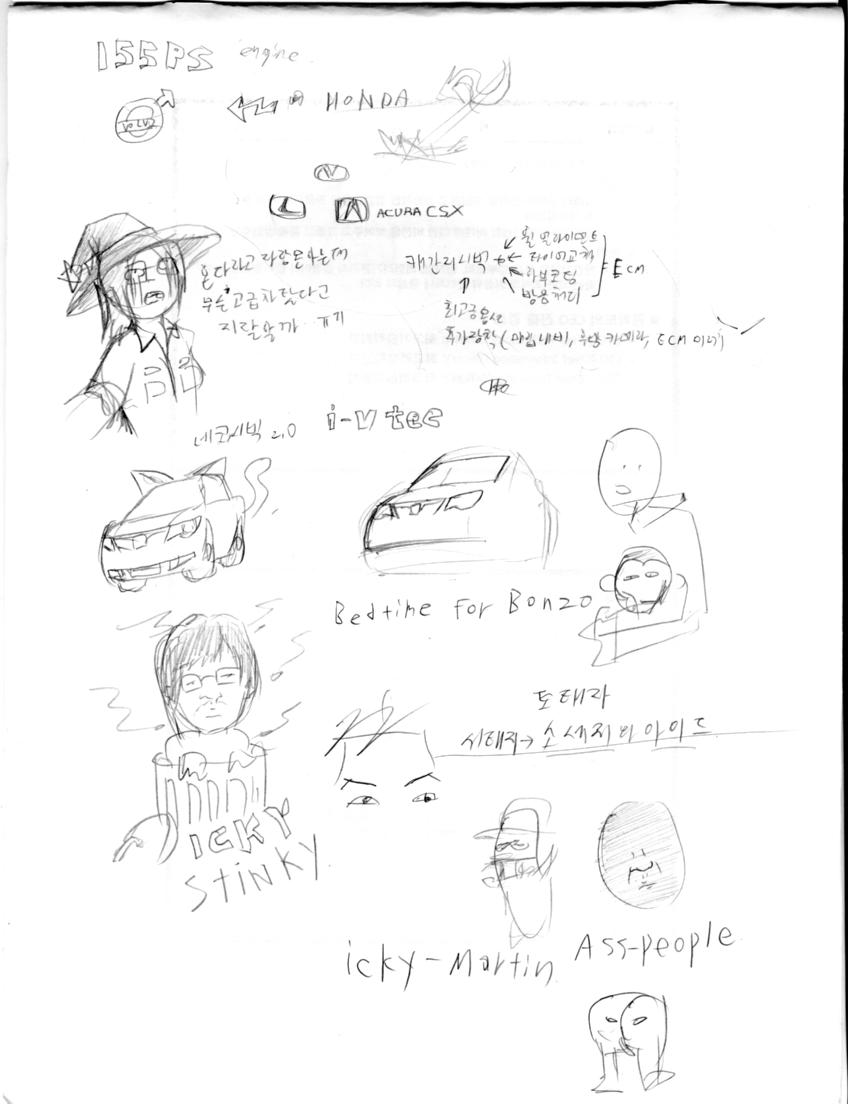 155PS engine
VOLVO
HONDA
ACURA CSX
혼다라고 자랑은 하는데
무슨 고급차 탔다고
지랄할까... ㅠㅠ
캐가리시빅
휠 얼라이먼트
타이어교체
하부코팅
방음처리
ECM
최고급옵션
추가장착 (매립내비, 후방카메라, ECM 미러)
네코시빅 2.0
i-VTEC
Bedtime For Bonzo
도태자
시태자→소세지와 아이드
ICKY
STiNKY
icky-Martin
Ass-people